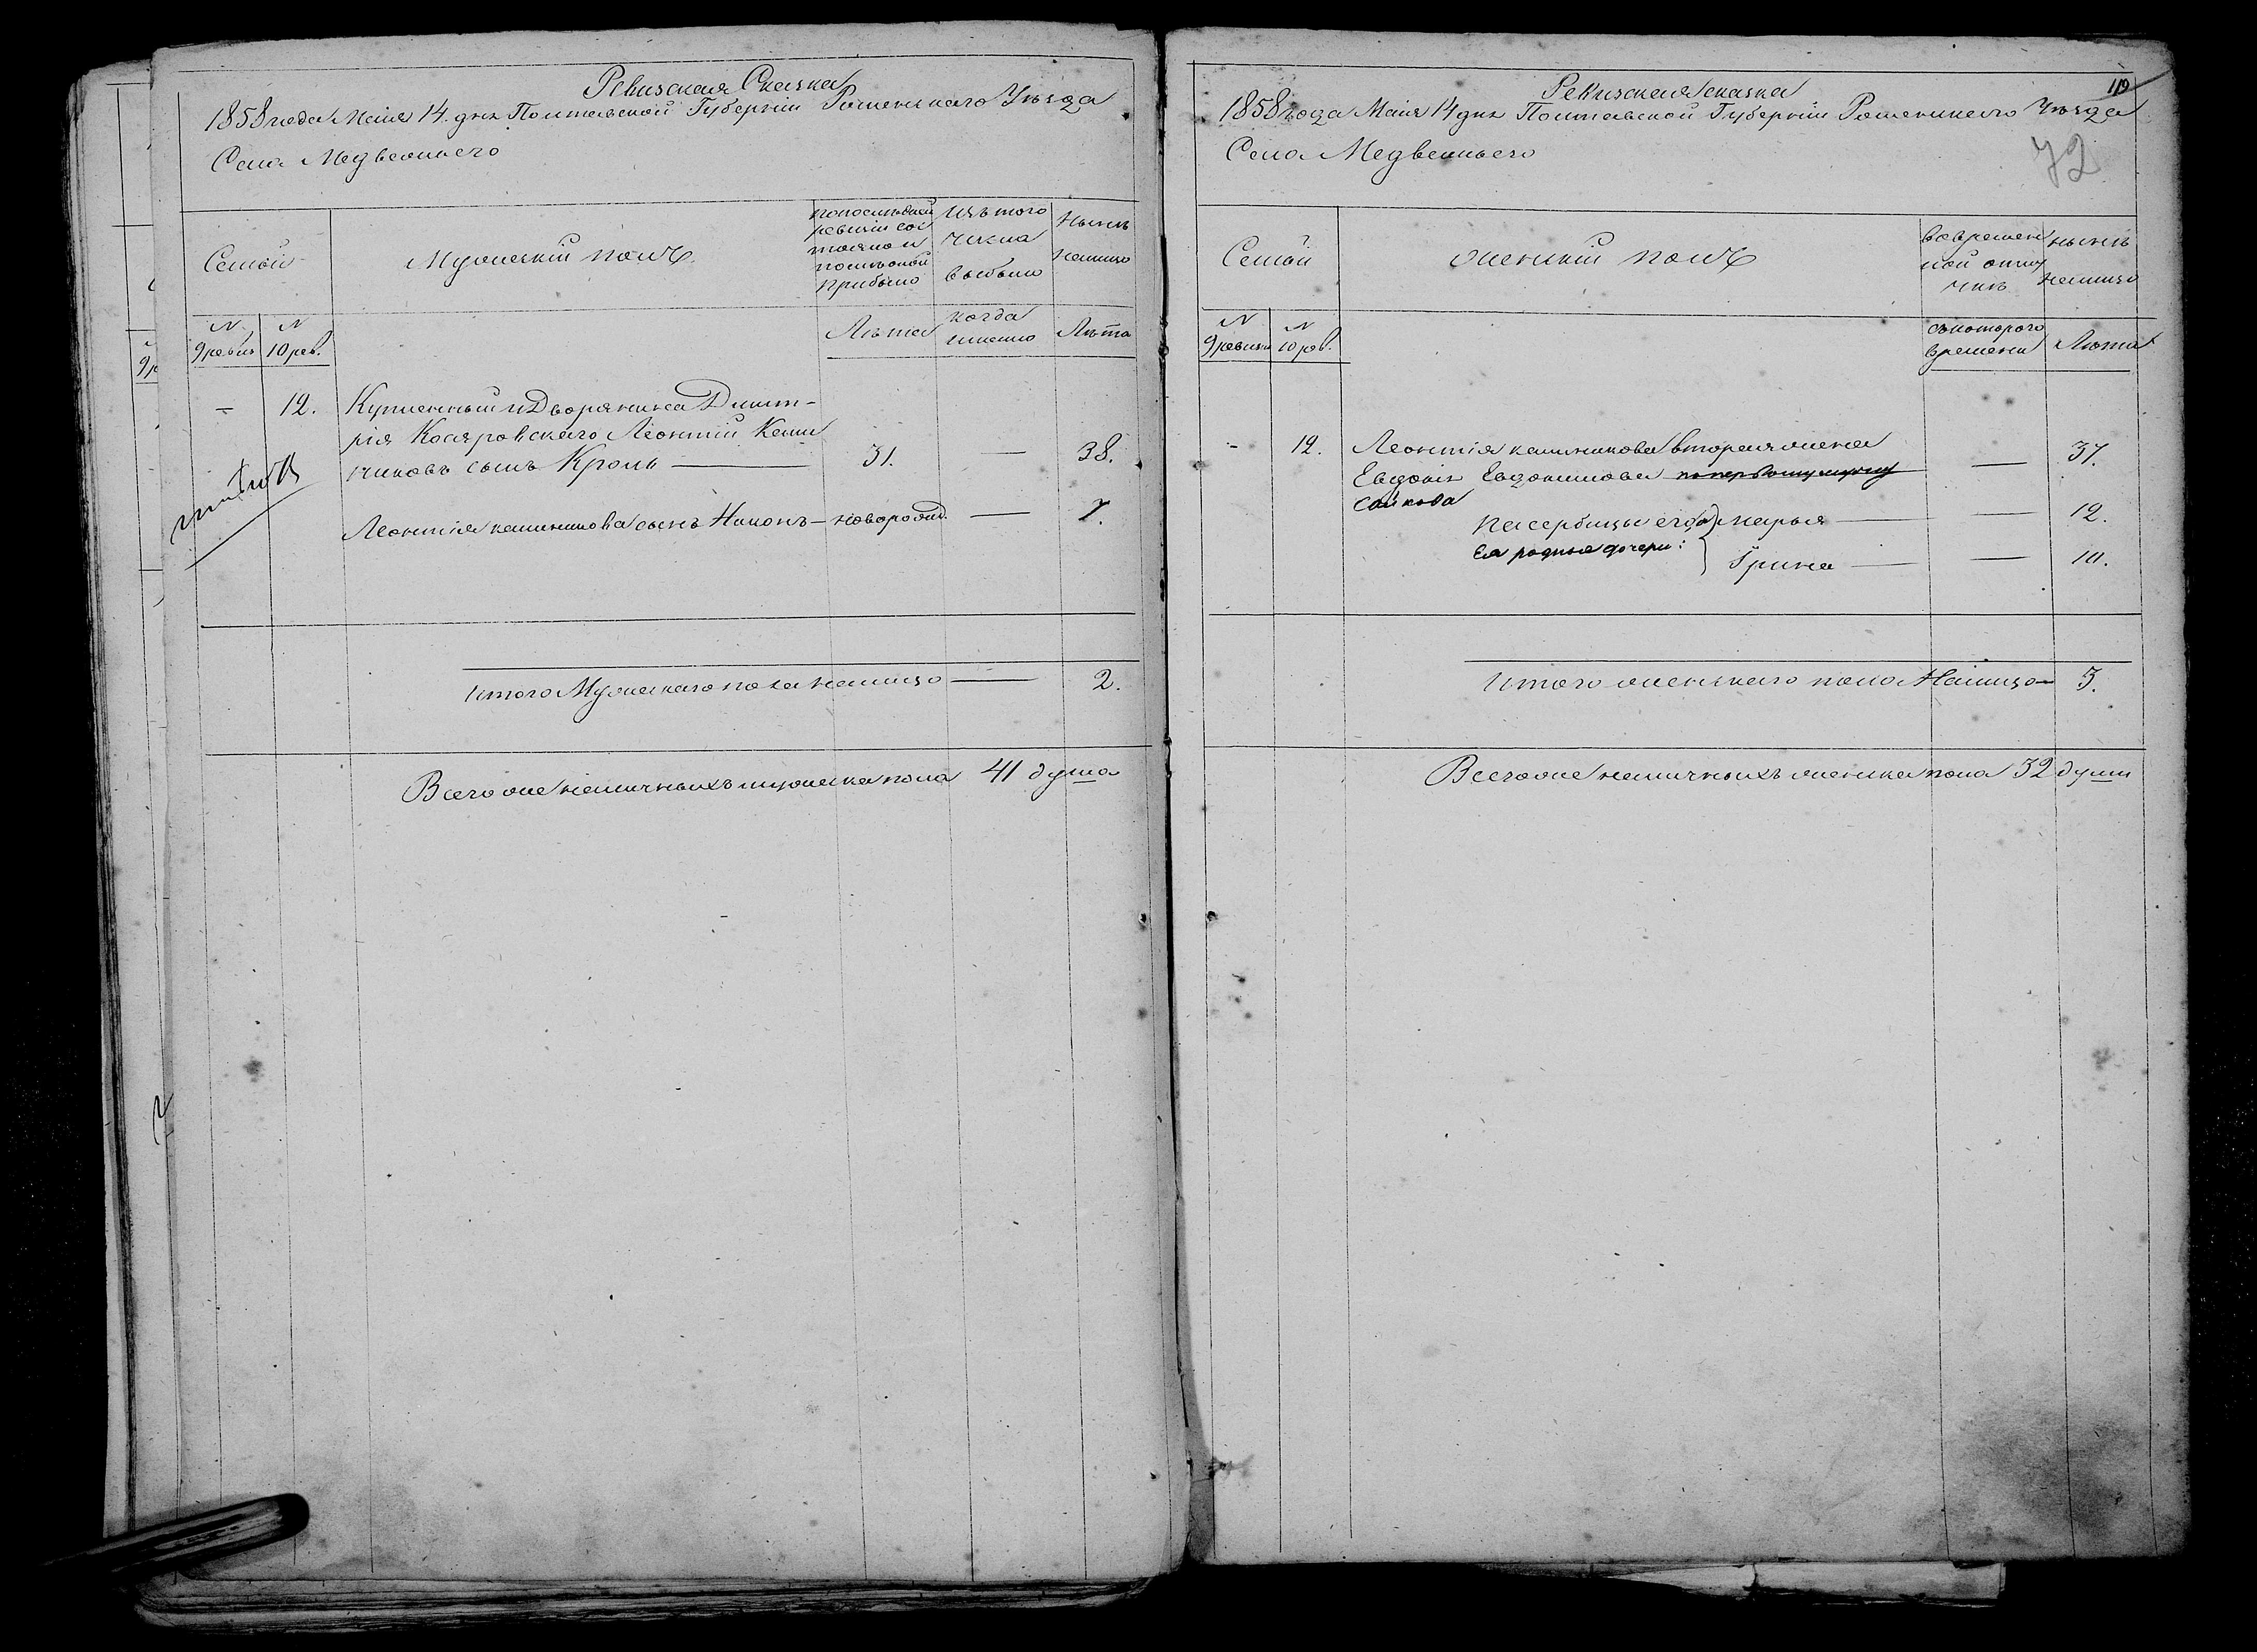 Ревизская Сказка
1858 года Маія 14. дня Полтавской Губерніи Роменскаго Уѣзда
Села Медвежьего
Семьи
Мужескій полъ
по послѣдней
ревизіи сос
тояло и
послѣ оной
прибыло
Изъ того
числа
выбыло
Нынѣ
налицо
N
9 ревиз
N
10 рев.
Лѣта
когда
именно
Лѣта
— 12. Купленный у Дворянина Димит-
рія Косяровскаго Леонтій Калин
никовъ сынъ Кроль — 31. — 38.
Леонтія калинникова сынъ Никонъ — новорожд. — 7.
Итого Мужескаго пола налицо — 2.
Всего же наличныхъ мужеска пола 41 душа
Ревизская Сказка
119
1858 года Маія 14 дня Полтавской Губерніи Роменскаго Уѣзда
Села Медвежьего
72
Семьи
Женскій полъ
во времен
ной отлу
чкѣ
нынѣ
налицо
N
9 ревизи
N
10 рев.
съ котораго
времени
Лѣта
- 12. Леонтія калинникова вторая жена
Евдокія Евдокимова по первому мужу — 37.
Сайкова
пасербицы его марья — — 12.
Ея родныя дочери: Ѣрина — — 10.
Итого женскаго пола Налицо — 3.
Всего же наличныхъ женска пола 32 души